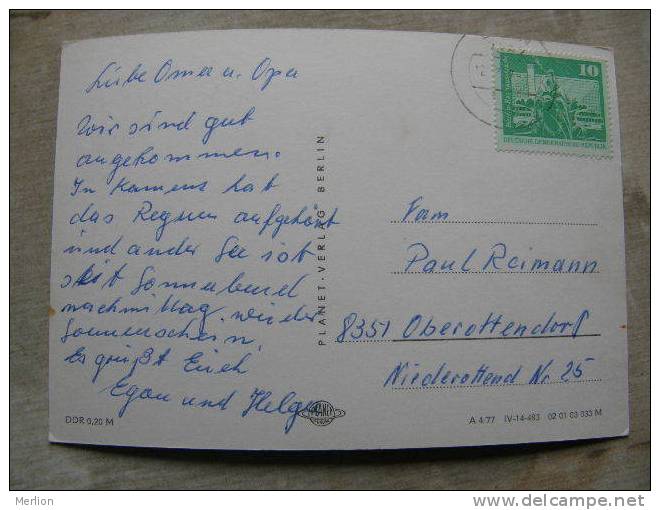 Liebe Oma u. Opa
Wir sind gut
angekommen.
In Kamenz hat
das Regnen aufgehört
und an der See ist
seit Sonnabend
nachmittag wieder
Sonnenschein.
Es grüßt Euch
Egon und Helga
DDR 0,20 M
PLANET-VERLAG BERLIN
PLANET
10
DEUTSCHE DEMOKRATISCHE REPUBLIK
Fam
Paul Reimann
8351 Oberottendorf
Niederottend Nr. 25
A 4/77 IV-14-483 02 01 03 033 M
Merlion
www.delcampe.net